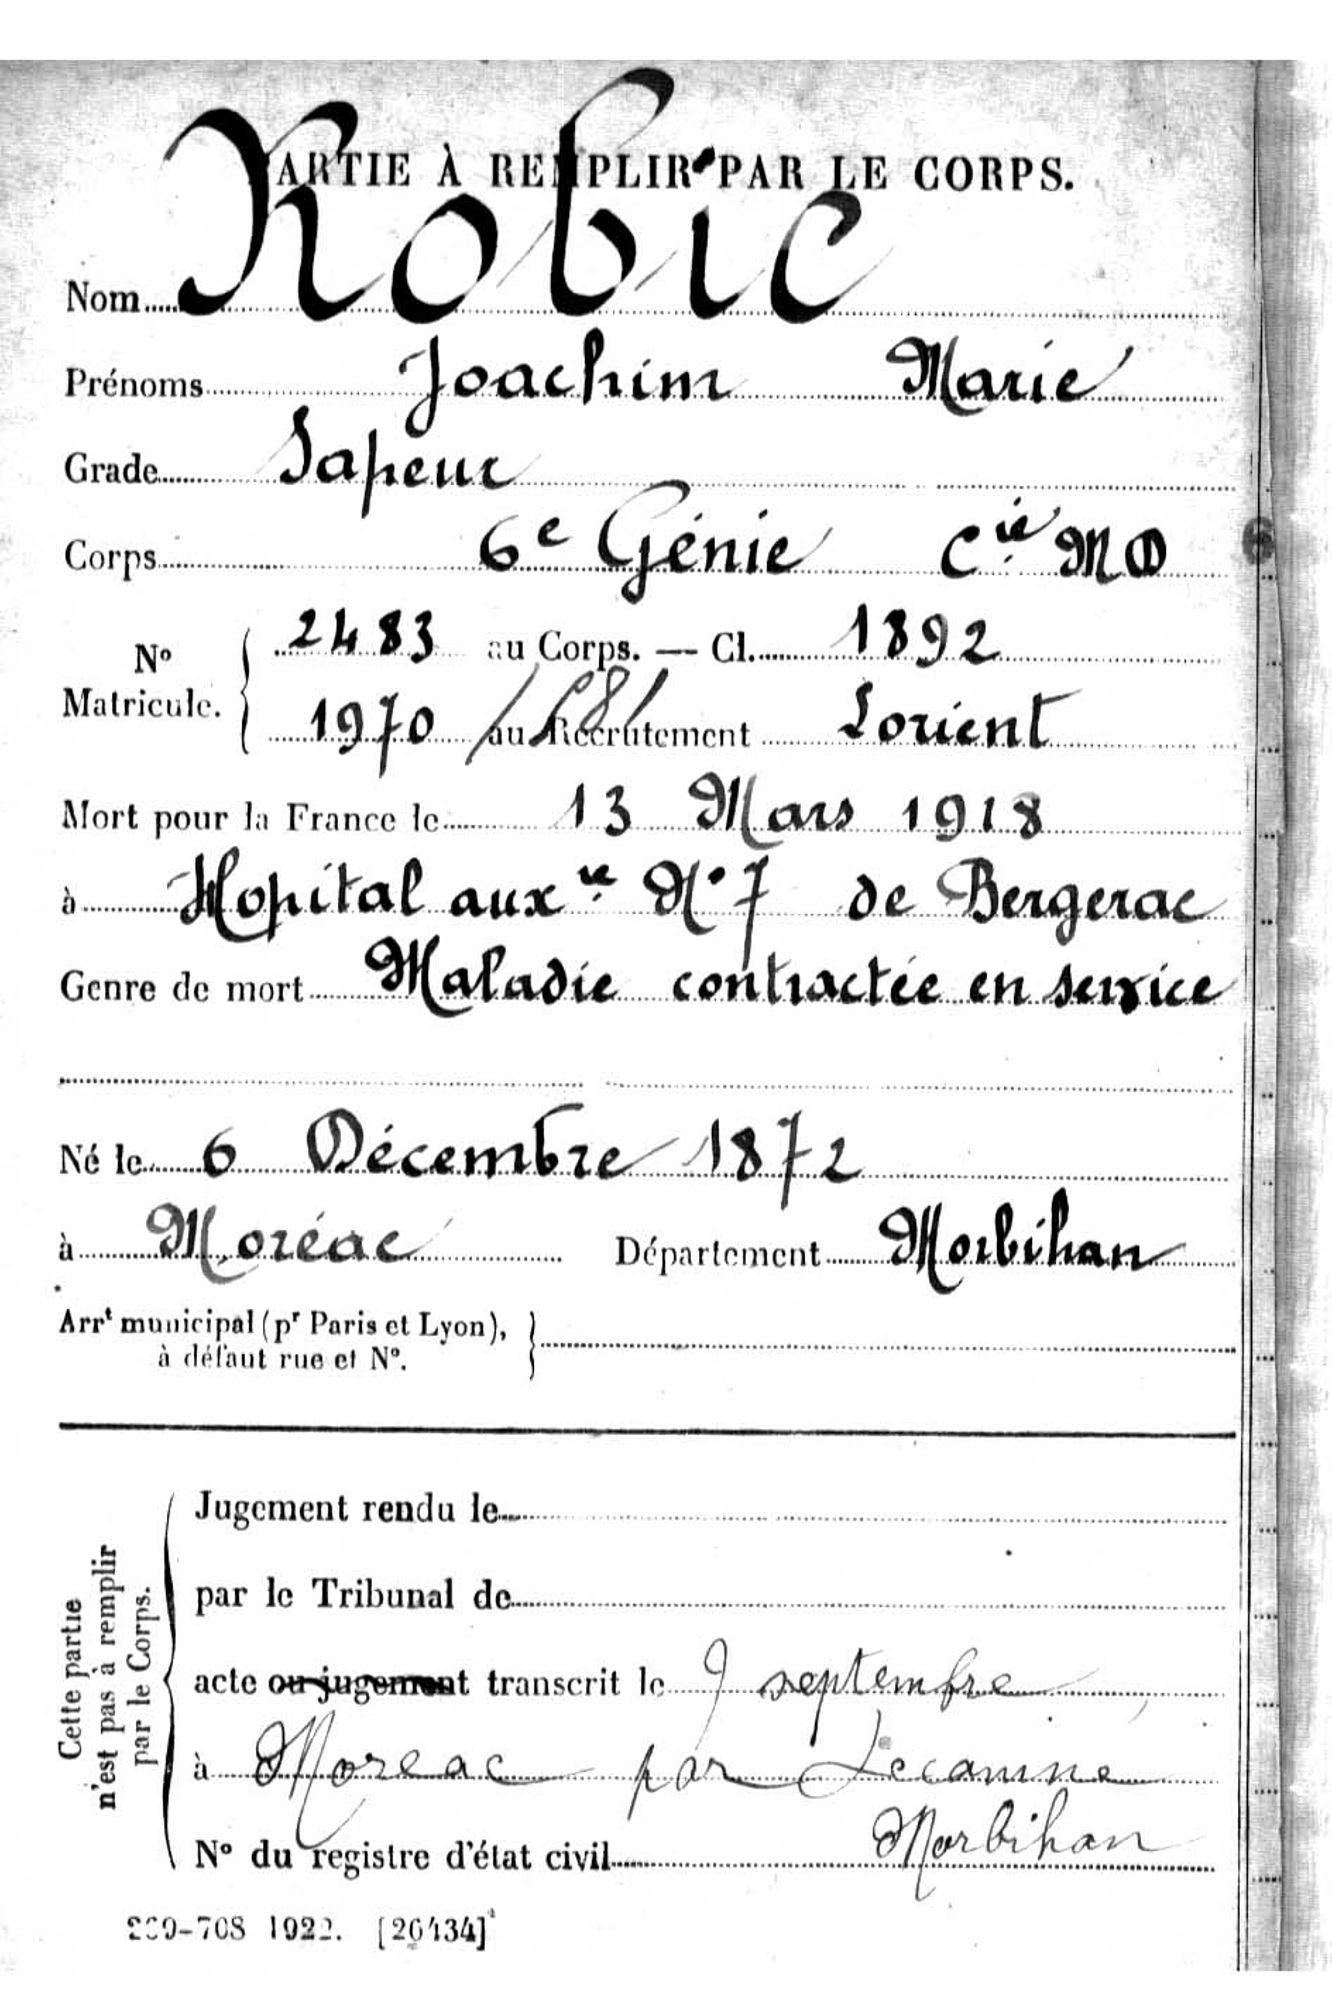 PARTIE À REMPLIR PAR LE CORPS.
Nom Robic
Prénoms Joachim Marie
Grade Sapeur
Corps 6e Génie Cie MD
No Matricule. 2483 au Corps. — Cl. 1892
1970 au Recrutement Lorient
Mort pour la France le 13 Mars 1918
à Hopital auxre No 7 de Bergerac
Genre de mort Maladie contractée en service
Né le 6 Décembre 1872
à Moréac Département Morbihan
Arrt municipal (pr Paris et Lyon),
à défaut rue et No.
Cette partie
n'est pas à remplir
par le Corps.
Jugement rendu le
par le Tribunal de
acte ou jugement transcrit le 9 septembre
à Moreac par Locmine
Morbihan
No du registre d'état civil
1922. [26434]